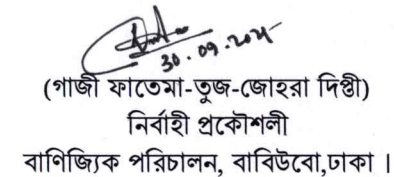 30.09.২০২৫
(গাজী ফাতেমা-তুজ-জোহরা দিপ্তী)
নির্বাহী প্রকৌশলী
বাণিজ্যিক পরিচালন, বাবিউবো,ঢাকা ।